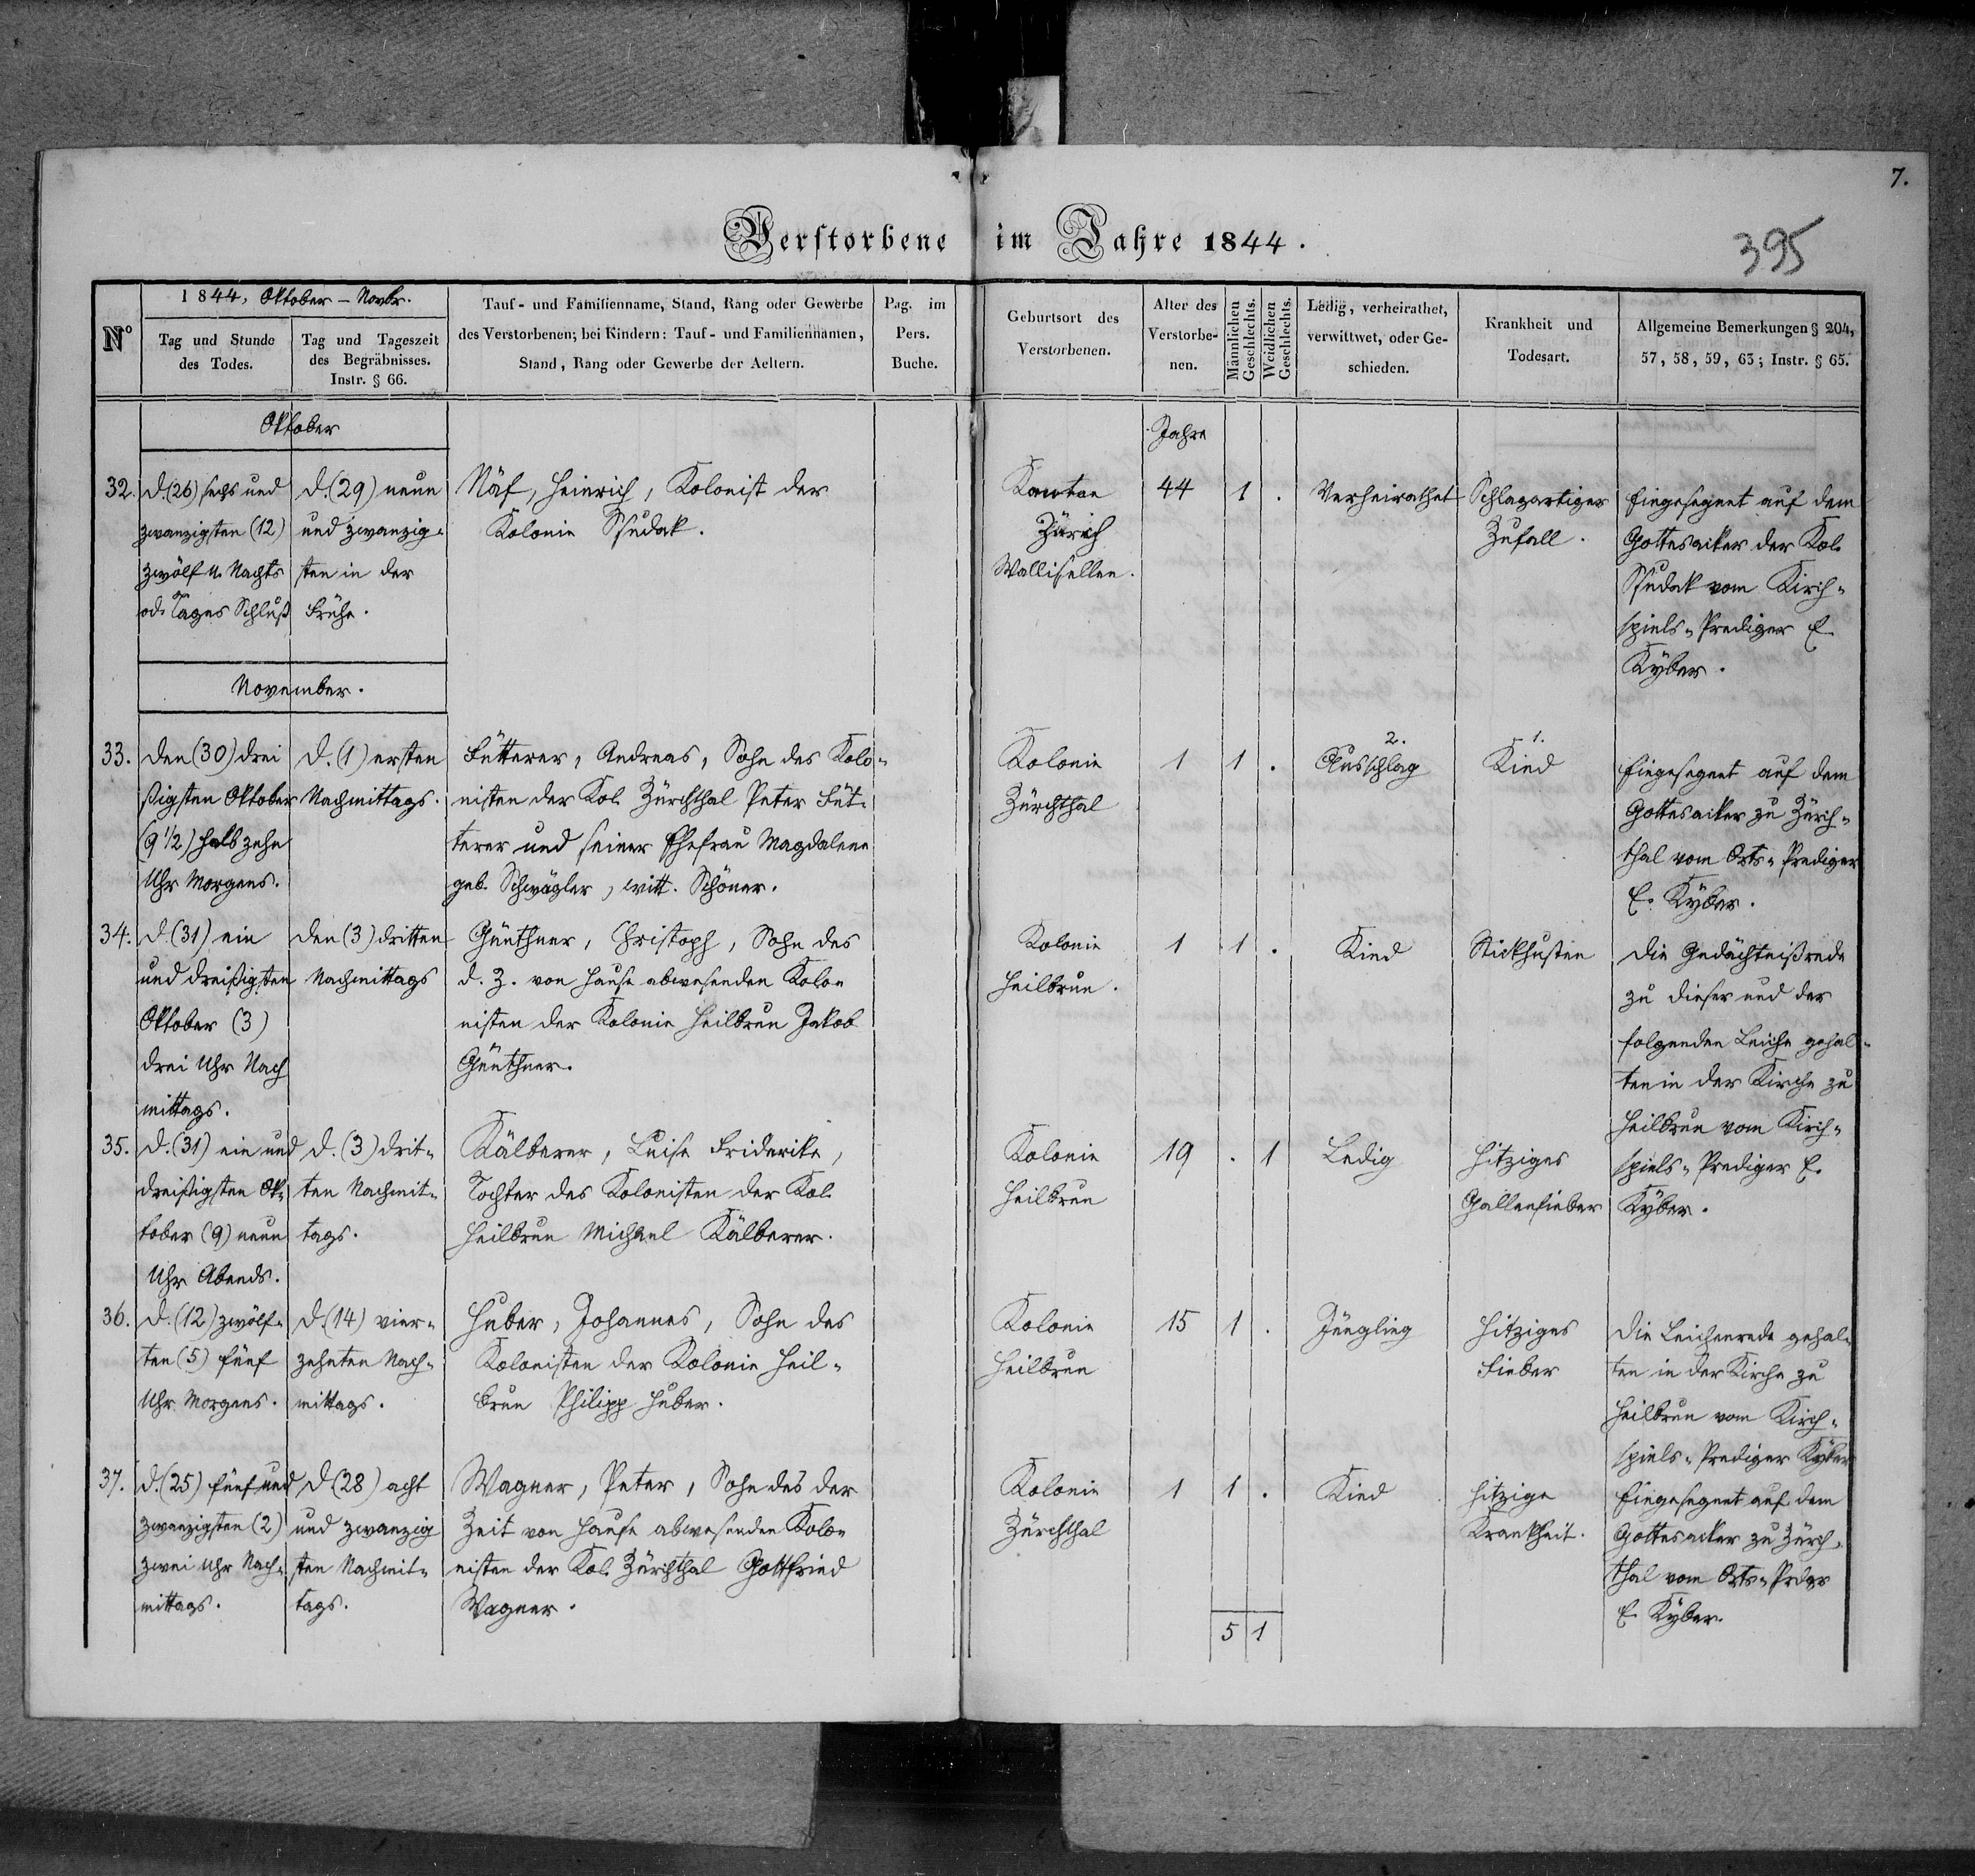 7.
Verstorbene im Jahre 1844.
395
No
1844, Oktober – Novbr.
Tag und Stunde
des Todes.
Tag und Tageszeit
des Begräbnisses.
Instr. § 66.
Tauf- und Familienname, Stand, Rang oder Gewerbe
des Verstorbenen; bei Kindern: Tauf- und Familiennamen,
Stand, Rang oder Gewerbe der Aeltern.
Pag. im
Pers.
Buche.
Geburtsort des
Verstorbenen.
Alter des
Verstorbe-
nen.
Männlichen
Geschlechts.
Weidlichen
Geschlechts.
Ledig, verheirathet,
verwittwet, oder Ge-
schieden.
Krankheit und
Todesart.
Allgemeine Bemerkungen § 204,
57, 58, 59, 63; Instr. § 65.
Oktober
Jahre
32.
d. (26) sechs und
zwanzigsten (12)
zwölf u. Nachts
od. Tages Schluß
d. (29) neun
und zwanzig-
sten in der
Frühe.
Näf, Heinrich, Kolonist der
Kolonie Sudak.
Kanton
Zürich
Wallisellen.
44
1
.
Verheirathet
Schlagartiger
Zufall.
Eingesegnet auf dem
Gottesacker der Kol.
Sudak vom Kirch-
spiels-Prediger E.
Kyber.
November.
33.
den (30) drei
ßigsten Oktober
(9 1/2) halb zehn
Uhr Morgens.
d. (1) ersten
Nachmittags.
Fütterer, Andreas, Sohn des Kolo-
nisten der Kol. Zürchthal Peter Füt-
terer und seiner Ehefrau Magdalene
geb. Schwägler, witt. Schöner.
Kolonie
Zürchthal
1
1
.
2.
Ausschlag
1.
Kind
Eingesegnet auf dem
Gottesacker zu Zürch-
thal vom Orts-Prediger
E. Kyber.
34.
d. (31) ein
und dreißigsten
Oktober (3)
drei Uhr Nach
mittags.
den (3) dritten
Nachmittags
Günthner, Christoph, Sohn des
d. Z. von Hause abwesenden Kolo-
nisten der Kolonie Heilbrun Jakob
Günthner.
Kolonie
Heilbrun.
1
1
.
Kind
Stickhusten
Die Gedächtnißrede
zu dieser und der
folgenden Leiche gehal-
ten in der Kirche zu
Heilbrun vom Kirch-
spiels-Prediger E.
Kyber.
35.
d. (31) ein und
dreißigsten Ok-
tober (9) neun
Uhr Abends.
d. (3) drit-
ten Nachmit-
tags.
Kälberer, Luise Friderike,
Tochter des Kolonisten der Kol.
Heilbrun Michael Kälberer.
Kolonie
Heilbrun
19
.
1
Ledig
Hitziges
Gallenfieber
36.
d. (12) zwölf-
ten (5) fünf
Uhr Morgens.
d. (14) vier-
zehnten Nach-
mittags.
Huber, Johannes, Sohn des
Kolonisten der Kolonie Heil-
brun Philipp Huber.
Kolonie
Heilbrun
15
1
.
Jüngling
Hitziges
Fieber
Die Leichenrede gehal-
ten in der Kirche zu
Heilbrun vom Kirch-
spiels-Prediger Kyber
37.
d. (25) fünf und
zwanzigsten (2)
zwei Uhr Nach-
mittags.
d. (28) acht
und zwanzig
sten Nachmit-
tags.
Wagner, Peter, Sohn des der
Zeit von Hause abwesenden Kolo-
nisten der Kol. Zürchthal Gottfried
Wagner.
Kolonie
Zürchthal
1
1
.
Kind
Hitzige
Krankheit.
Eingesegnet auf dem
Gottesacker zu Zürch-
thal vom Orts-Prdgr
E. Kyber.
5
1